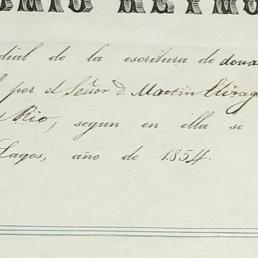 dial de la escritura de dona
por el Señor D. Martin Elizag
Rio, segun en ella se
Lagos, año de 1854.